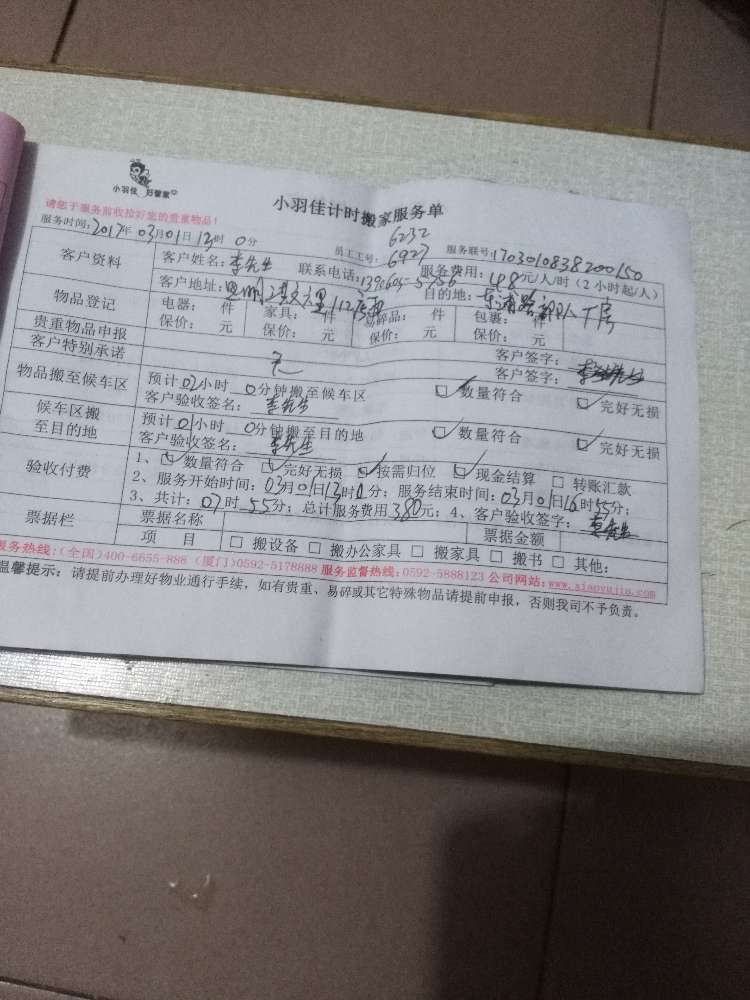 小羽佳 好管家
小羽佳计时搬家服务单
请您于服务前收拾好您的贵重物品!
服务时间:2017年03月01日13时0分
员工工号: 6232 6927
服务联号:1703010838200150
客户资料
客户姓名:李先生 联系电话: 服务费用:48元/人/时(2小时起/人)
客户地址: 目的地:
物品登记
电器: 件 家具: 件 易碎品: 件 包裹: 件
保价: 元 保价: 元 保价: 元 保价: 元
贵重物品申报 客户签字:
客户特别承诺 客户签字:
物品搬至候车区
预计02小时0分钟搬至候车区 数量符合 完好无损
客户验收签名:李先生
候车区搬至目的地
预计01小时0分钟搬至目的地 数量符合 完好无损
客户验收签名:李先生
验收付费
1、数量符合 完好无损 按需归位 现金结算 转账汇款
2、服务开始时间:03月01日13时0分;服务结束时间:03月01日16时55分;
3、共计:07时55分;总计服务费用380元;4、客户验收签字:
票据栏
票据名称 票据金额
项 目 搬设备 搬办公家具 搬家具 搬书 其他:
服务热线:(全国)400-6655-888 (厦门)0592-5178888 服务监督热线:0592-5888123 公司网站:www.xiaoyujia.com
温馨提示:请提前办理好物业通行手续,如有贵重、易碎或其它特殊物品请提前申报,否则我司不予负责。